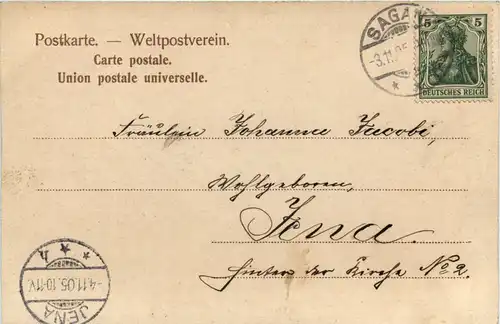 Postkarte. — Weltpostverein.
Carte postale.
Union postale universelle.
SAGAN
-3.11.05
5 5
DEUTSCHES REICH
Fräulein Johanna Jacobi,
Wohlgeboren,
Jena.
Hinter der Kirche No 2.
JENA
-4.11.05. 10-11V.